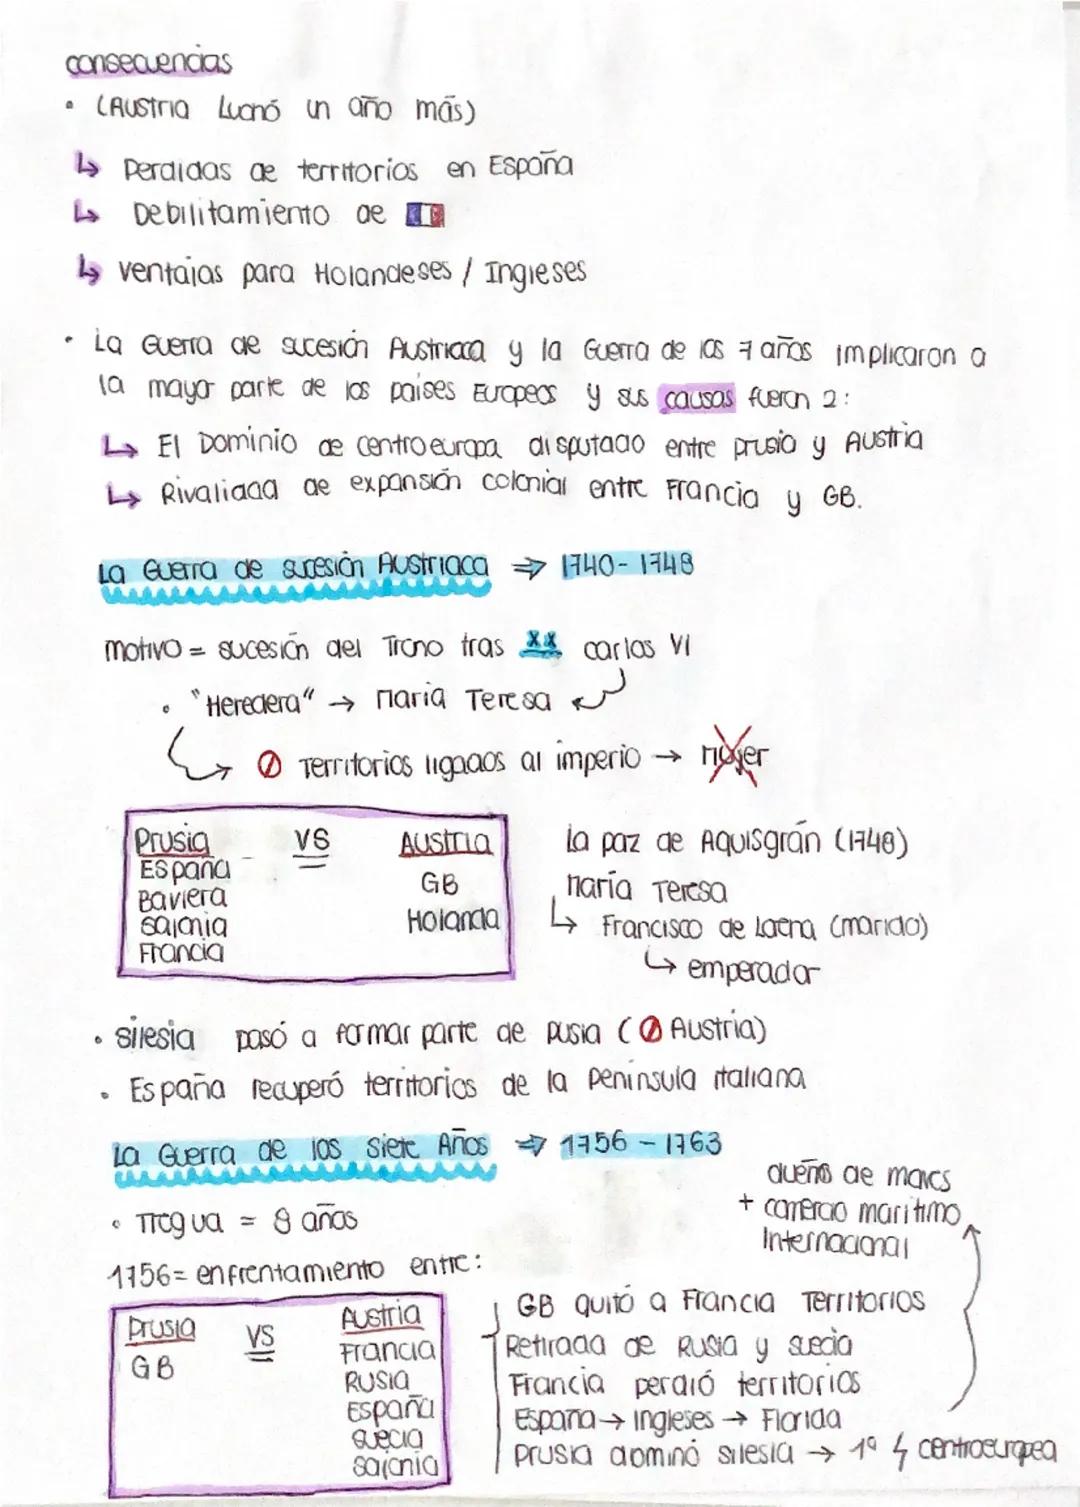 consecuencias
• (Austria Luchó un año más)
↳ Perdidas de territorios en España
↳ Debilitamiento de
↳ ventajas para Holandeses / Ingleses
• La Guerra de sucesión Austriaca y la Guerra de los 7 años implicaron a
la mayor parte de los países Europeos y sus causas fueron 2:
↳ El Dominio de centroeuropa disputado entre prusia y Austria
↳ Rivalidad de expansión colonial entre Francia y GB.
La Guerra de sucesión Austriaca ⇒ 1740-1748
motivo = sucesión del Trono tras carlos VI
• "Heredera" → María Teresa
Ø Territorios ligados al imperio → mujer
Prusia VS Austria
España
GB
Baviera
Holanda
sajonia
Francia
La paz de Aquisgrán (1748)
María Teresa
↳ Francisco de Lorena (marido)
↳ emperador
• silesia pasó a formar parte de pusia (Ø Austria)
• España recuperó territorios de la Península italiana
La Guerra de los Siete Años ⇒ 1756 - 1763
• Tregua = 8 años
dueños de mares
+ comercio marítimo
Internacional
1756= enfrentamiento entre:
Prusia VS Austria
GB
Francia
Rusia
España
Suecia
Sajonia
GB quitó a Francia Territorios
Retirada de Rusia y suecia
Francia perdió territorios
España → Ingleses → Florida
Prusia dominó silesia → 1º centroeuropea